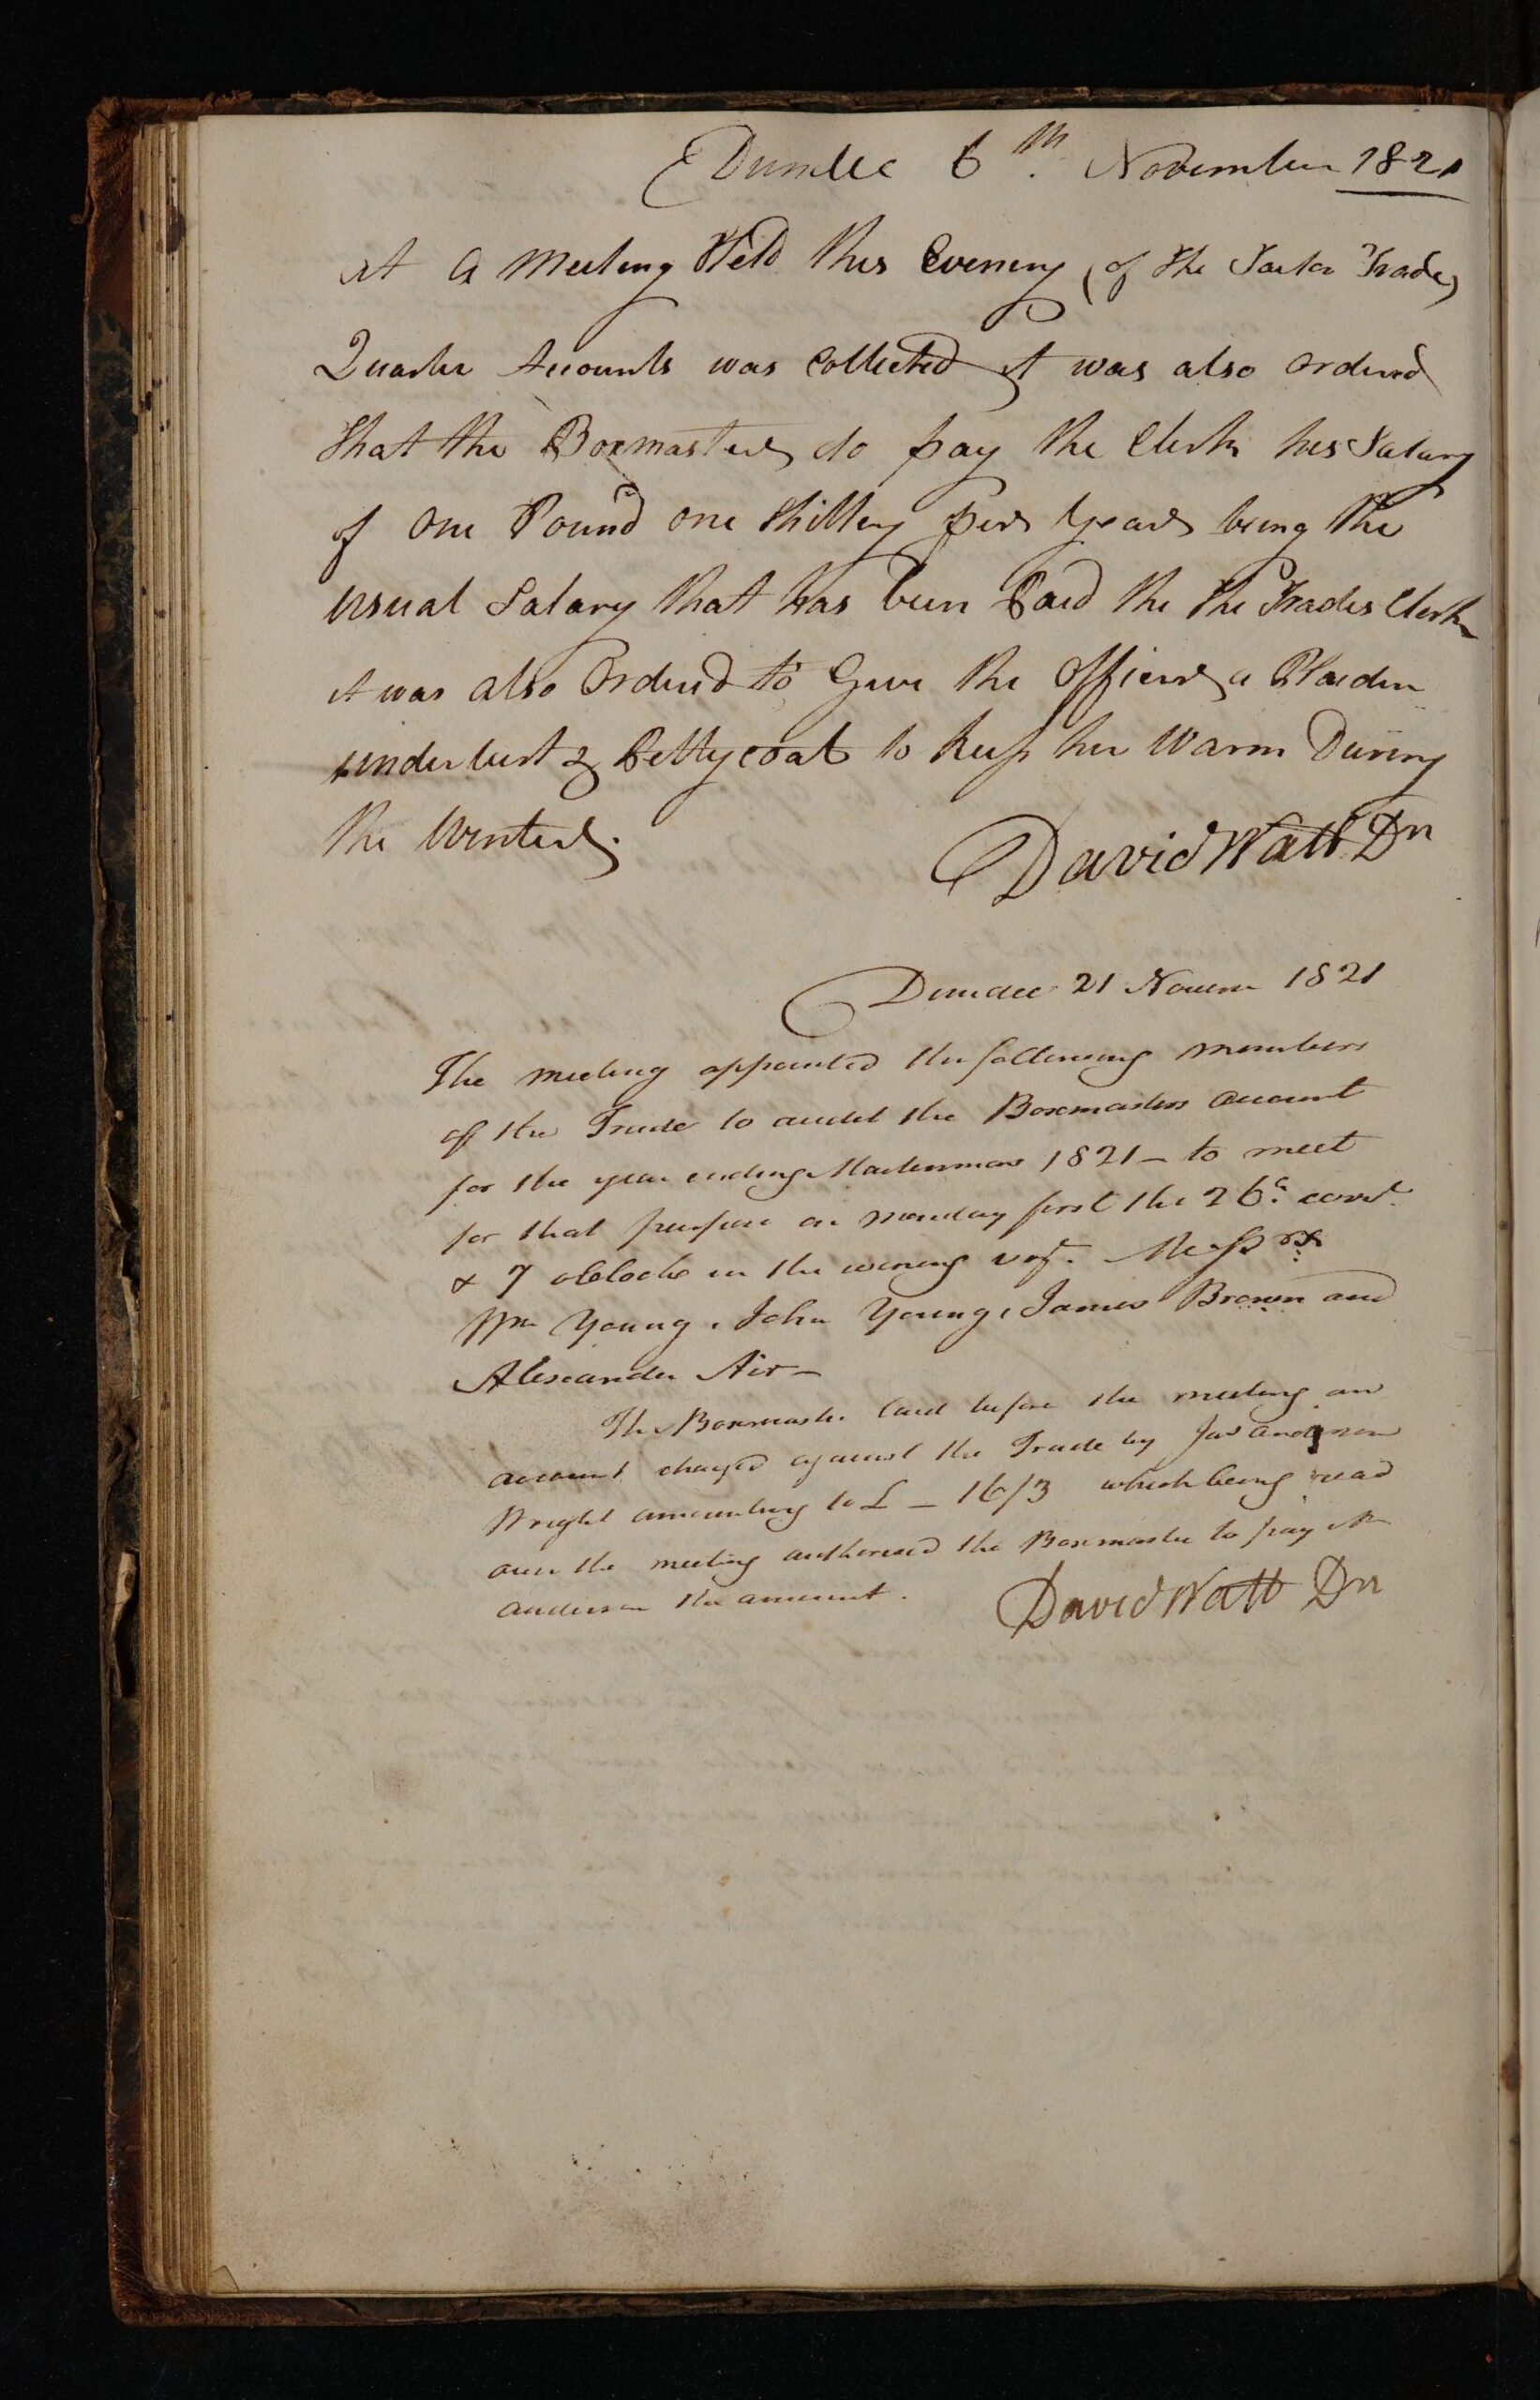 Dundee 6th. November 1821
At A Meeting Held this Evening (of the Tailor Trade)
Quarter Accounts was Collected it was also ordered
that the Boxmaster do pay the Clerk his Salary
of One Pound one Shilling per Year being the
usual Salary that has been Paid the the Trades Clerk
it was also Ordered to Give the Officer a Plaiden
under &  Pettycoat to keep her Warm During
the Winter.
David Watt Dn
Dundee 21 Novem 1821
The meeting appointed the following members
of the Trade to audit the Boxmasters account
for the year ending Martinmas 1821 – to meet
for that purpose on monday first the 26 curt.
7 oClock in the evening viz. Messrs.
Wm Young, John Young, James Brown and
Alexander Air –
The Boxmaster laid before the meeting an
account charged against the Trade by Jas Anderson
Wright amounting to £ – 16/3 which being read
over the meeting authorised the Boxmaster to pay Mr
Anderson the amount.
David Watt Dn